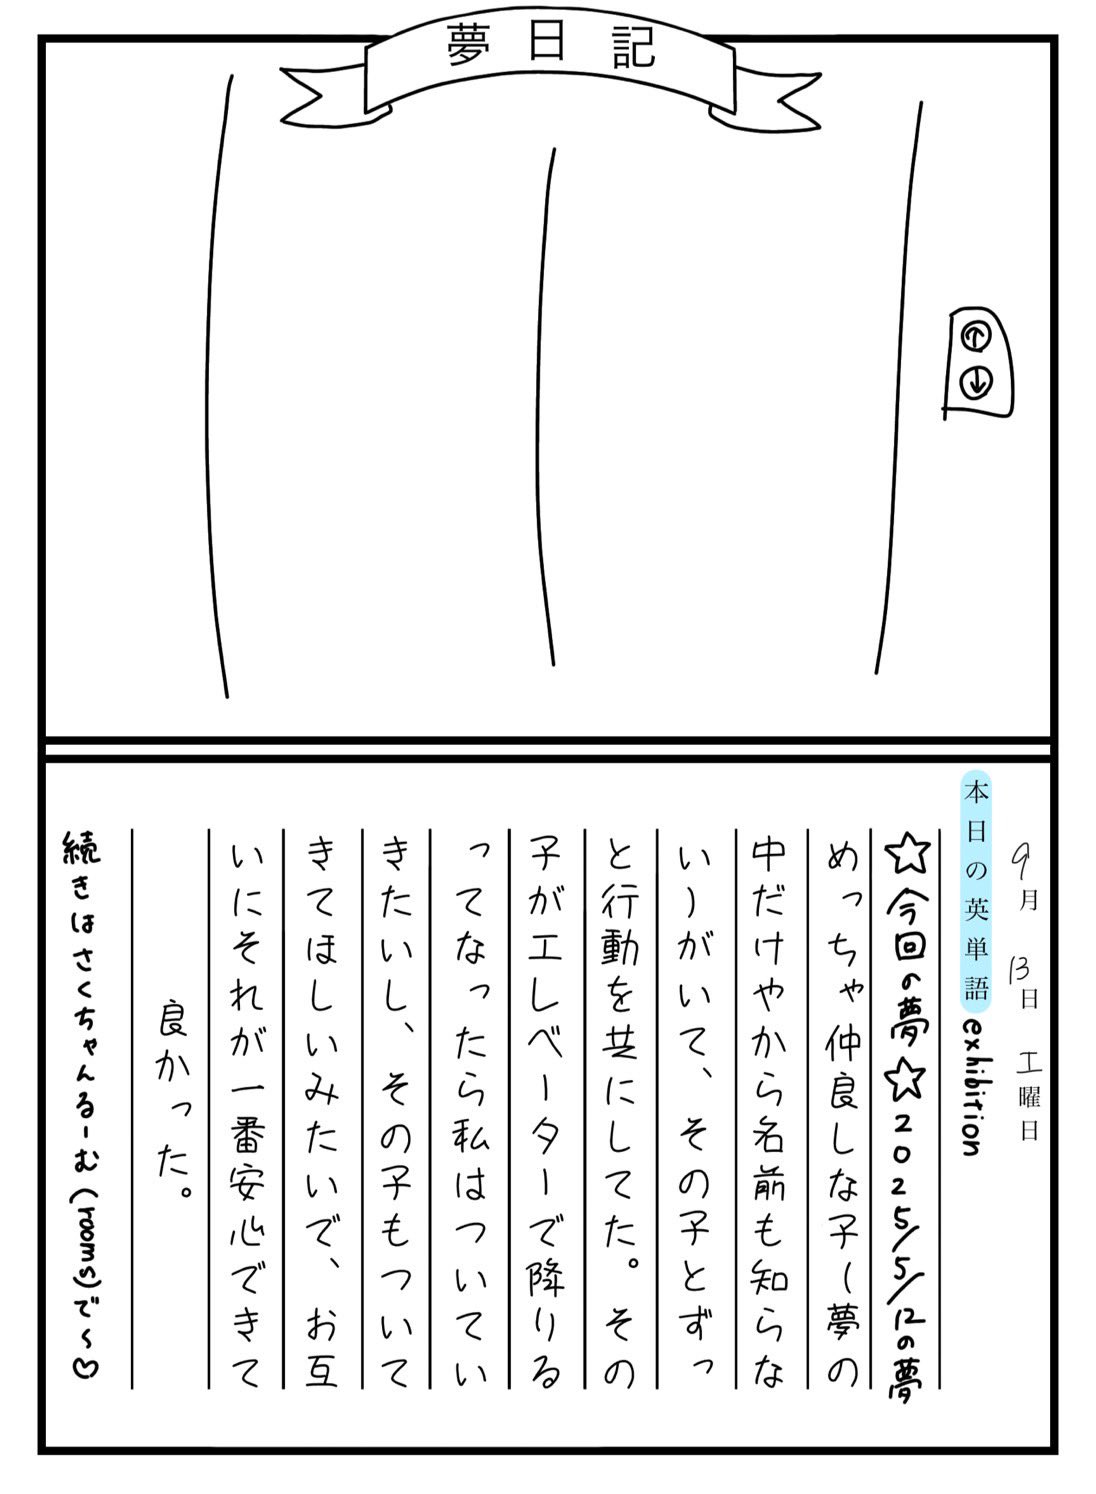 夢日記
9月13日土曜日
本日の英単語 exhibition
☆今回の夢☆2025/5/12の夢
めっちゃ仲良しな子(夢の
中だけやから名前も知らな
い)がいて、その子とずっ
と行動を共にしてた。その
子がエレベーターで降りる
ってなったら私はついてい
きたいし、その子もついて
きてほしいみたいで、お互
いにそれが一番安心できて
良かった。
続きはさくちゃんるーむ(rooms)で～♡